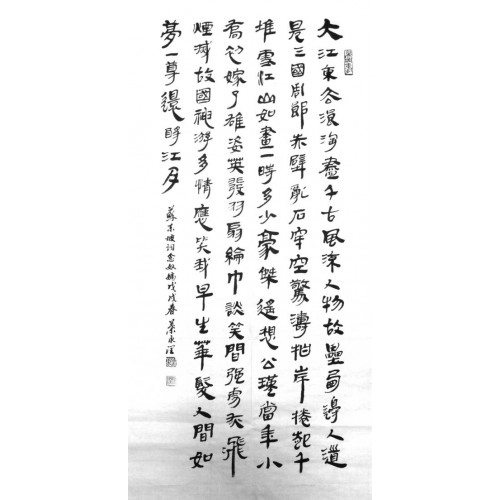 大江東去浪淘盡千古風流人物故壘西邊人道
是三國周郎赤壁亂石穿空驚濤拍岸捲起千
堆雪江山如畫一時多少豪傑遙想公瑾當年小
喬初嫁了雄姿英發羽扇綸巾談笑間強虜灰飛
煙滅故國神遊多情應笑我早生華髮人間如
夢一尊還酹江月
蘇東坡詞念奴嬌戊戌春